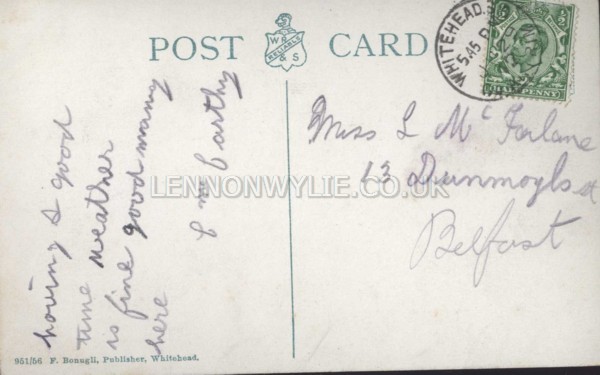 POST CARD
W R
RELIABLE
& S
WHITEHEAD
5.45 P
HALFPENNY
having a good
time weather
is fine good many
here
Miss L McFarlane
13 Dunmoyle st
Belfast
LENNONWYLIE.CO.UK
951/56 F. Bonugli, Publisher, Whitehead.